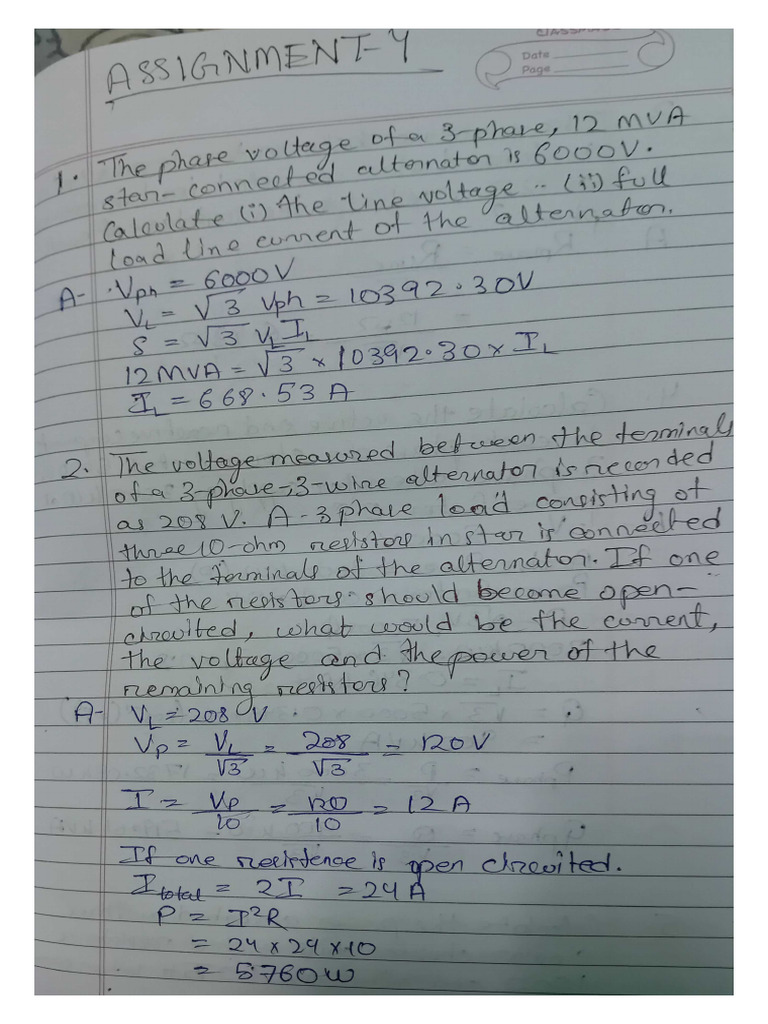 CLASSMATE
Date
Page
ASSIGNMENT-4
1. The phase voltage of a 3-phase, 12 MVA
star-connected alternator is 6000V.
Calculate (i) the line voltage .. (ii) full
load line current of the alternator.
A- Vph = 6000V
VL = √3 Vph = 10392.30V
S = √3 VL IL
12MVA = √3 × 10392.30 × IL
IL = 668.53 A
2. The voltage measured between the terminals
of a 3-phase, 3-wire alternator is recorded
as 208 V. A 3 phase load consisting of
three 10-ohm resistors in star is connected
to the terminals of the alternator. If one
of the resistors should become open-
circuited, what would be the current,
the voltage and the power of the
remaining resistors?
A- VL = 208 V
VP = VL/√3 = 208/√3 = 120V
I = VP/10 = 120/10 = 12 A
If one resistence is open circuited.
Itotal = 2I = 24A
P = I²R
= 24 × 24 × 10
= 5760W